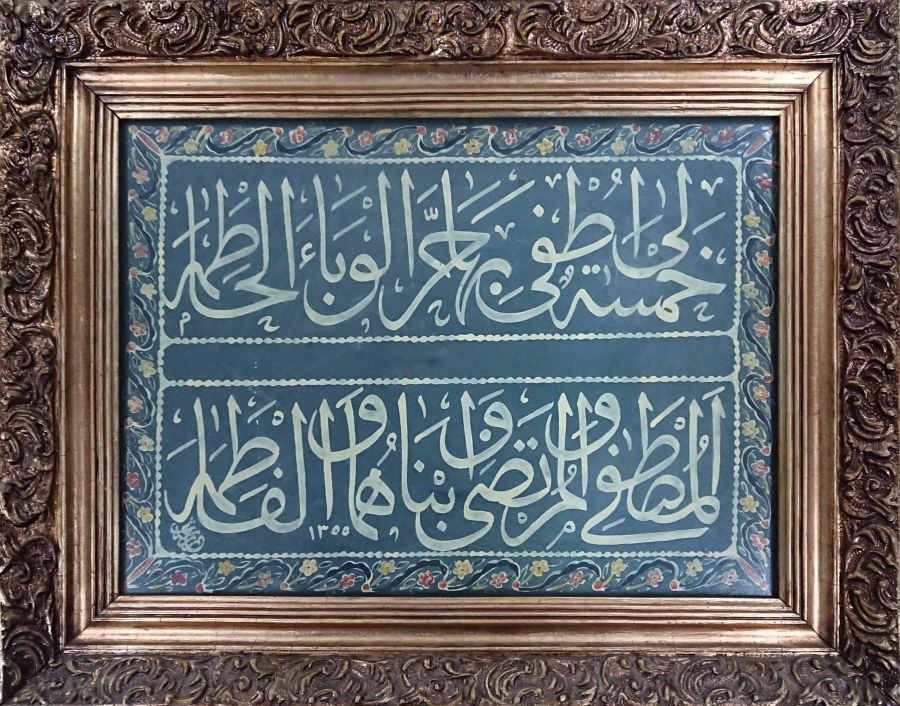 لي خمسة اطفي بها حر الوباء الحاطمة
المصطفى و المرتضى و ابناهما و الفاطمة
١٣٥٥